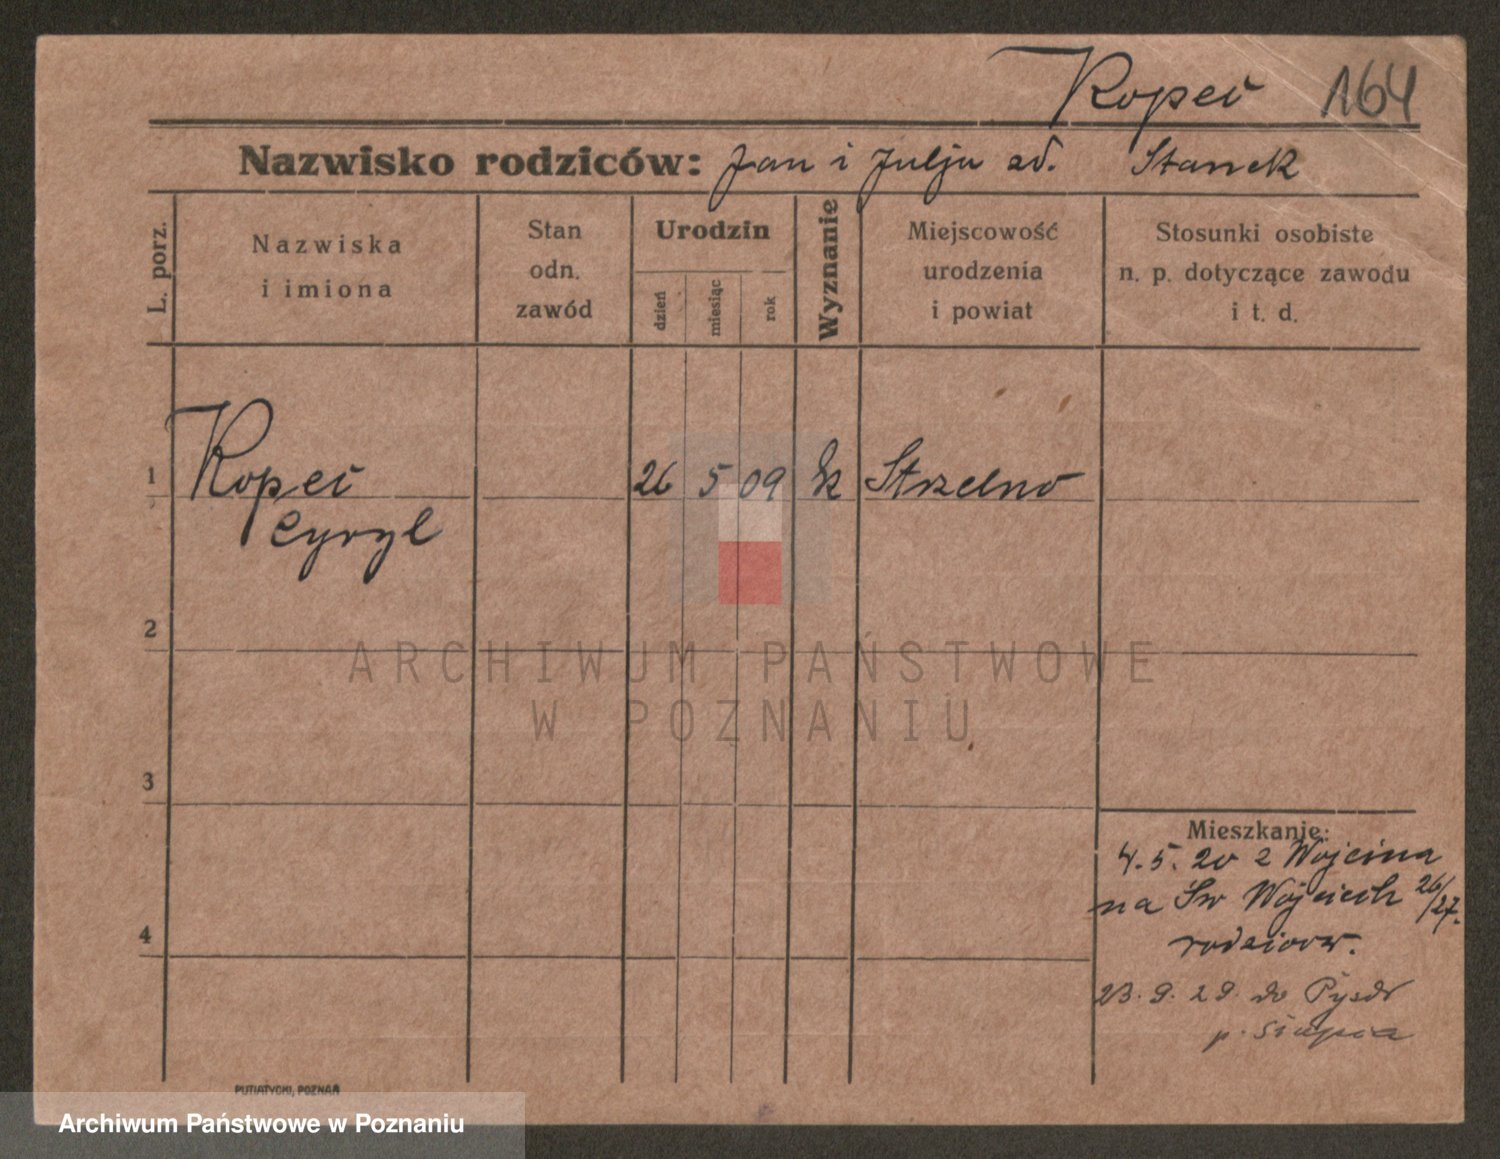 Kopeć 164
Nazwisko rodziców: Jan i Julja zd. Stanek
L. porz.
Nazwiska
i imiona
Stan
odn.
zawód
Urodzin
dzień
miesiąc
rok
Wyznanie
Miejscowość
urodzenia
i powiat
Stosunki osobiste
n. p. dotyczące zawodu
i t. d.
1 Kopeć 26 5 09 k Strzelno
Cyryl
2
3
4
Mieszkanie:
4.5.20 z Wójcina
na Św Wojciech 26/27.
rodziców.
23.9.29. do Pyzdr
p.
PUTIATYCKI, POZNAŃ
ARCHIWUM PAŃSTWOWE
W POZNANIU
Archiwum Państwowe w Poznaniu